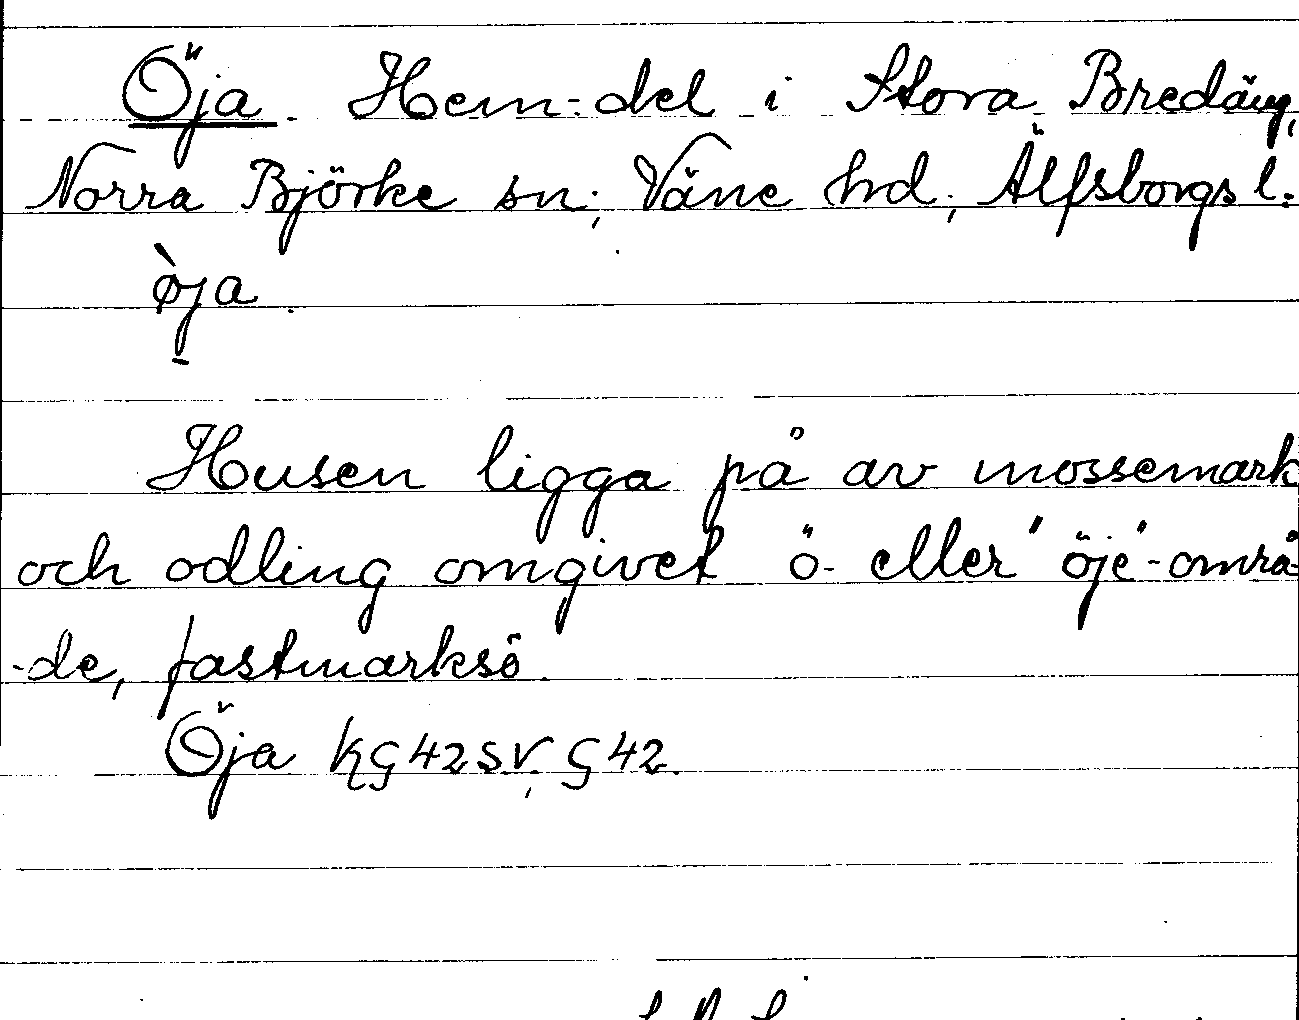 Öja. Hem-del i Stora Bredäng,
Norra Björke sn; Väne hd; Älfsborgs l:
ø̀ja.
Husen ligga på av mossemark
och odling omgivet ö- eller "öje"-områ-
-de, fastmarksö.
Öja KG42SV, G42.